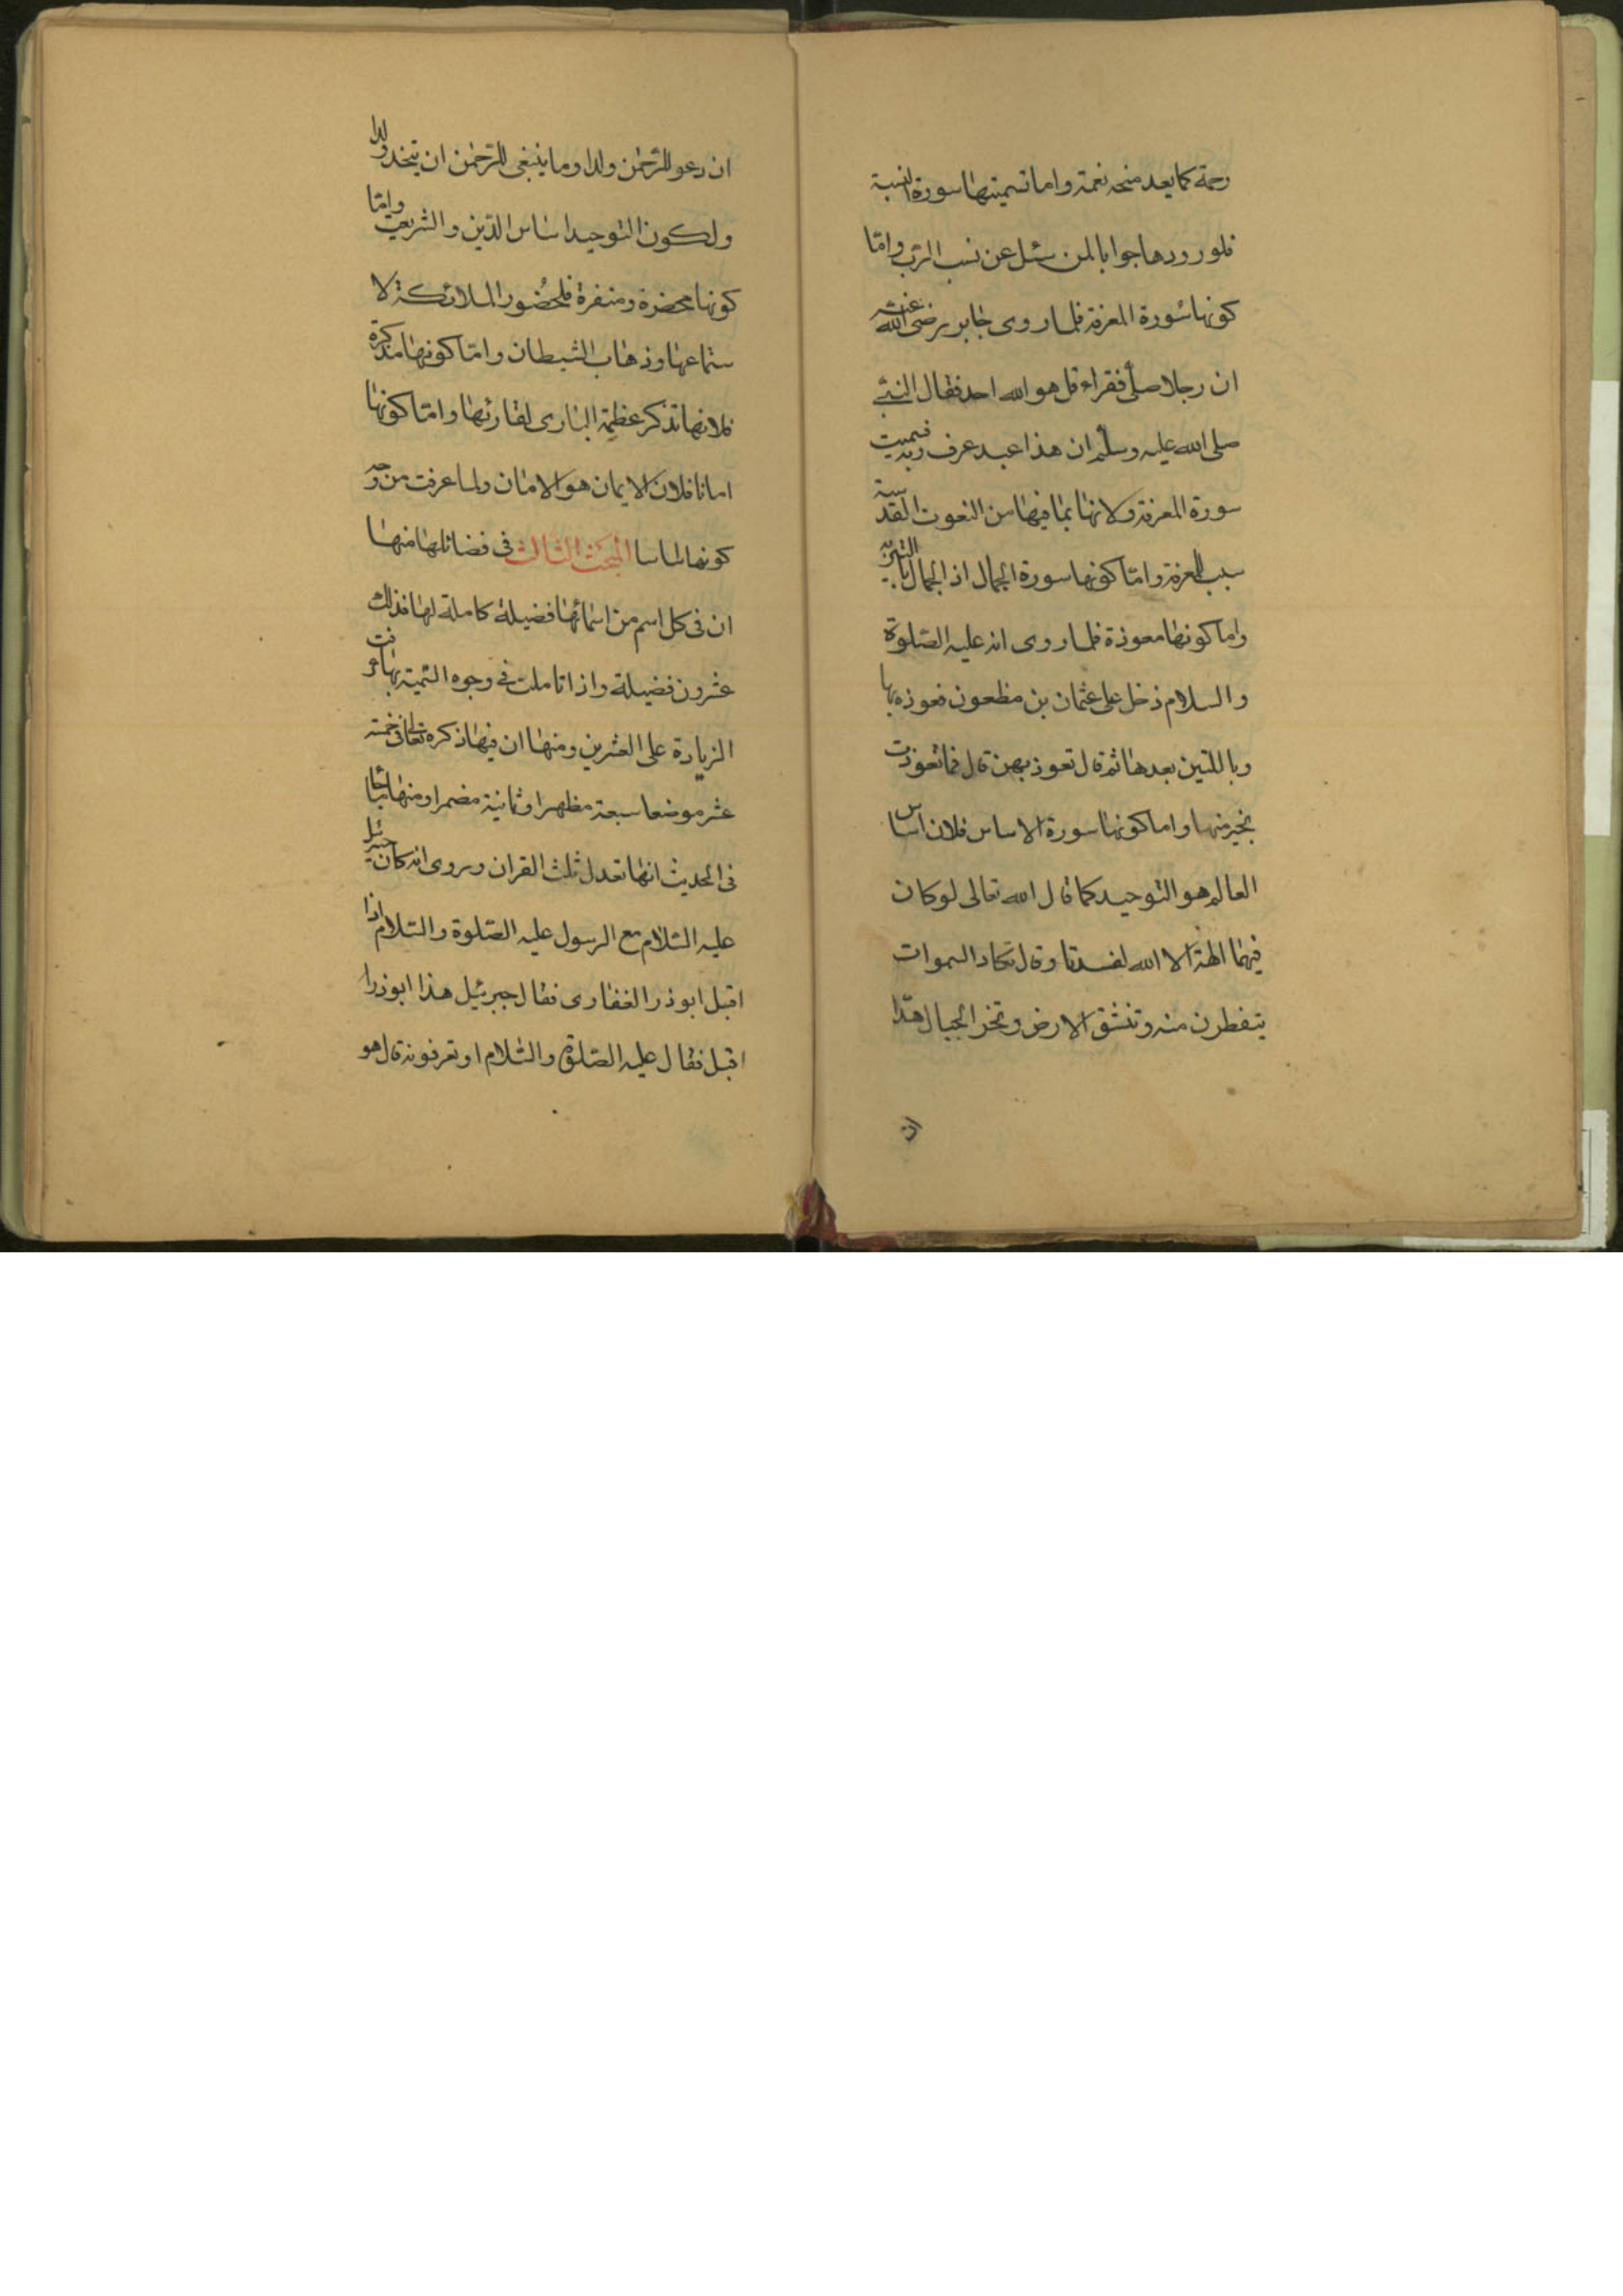 رحمة كما يعد منحه نعمة واما تسميتها سورة النسبة
فلورودها جوابا لمن سئل عن نسب الرب واما
كونها سورة المعرفة فلما روى جابر رضى الله عنه
ان رجلا صلى فقراء قل هو الله احد فقال النبى
صلى الله عليه وسلم ان هذا عبد عرف ربه فسميت
سورة المعرفة ولانها بما فيها من النعوت القدسية
سبب للمعرفة واما كونها سورة الجمال اذ الجمال بالتنزيه
واما كونها معوذة فلما روى انه عليه الصلوة
والسلام دخل على عثمان بن مظعون فعوذه بها
وباللتين بعدها ثم قال تعوذ بهن قال فما تعوذت
بخير منها واما كونها سورة الاساس فلان اساس
العالم هو التوحيد كما قال الله تعالى لو كان
فيهما الهة الا الله لفسدتا وقال تكاد السموات
يتفطرن منه وتنشق الارض وتخر الجبال هدا
ان
ان دعو للرحمن ولدا وما ينبغى للرحمن ان يتخد ولدا
ولكون التوحيد اساس الدين والشريعة واما
كونها محضرة ومنفرة فلحضور الملائكة لا
ستماعها وذهاب الشيطان واما كونها مذكرة
فلانها تذكر عظمة البارى لقارئها واما كونها
امانا فلان الايمان هو الامان ولما عرفت من وجه
كونها اساسا المبحث الثالث فى فضائلها منها
ان فى كل اسم من اسمائها فضيلة كاملة لها فذلك
عشرون فضيلة واذا تاملت فى وجوه التسمية بها عرفت
الزيادة على العشرين ومنها ان فيها ذكره تعالى فى خمسة
عشر موضعا سبعة مظهرا وثمانية مضمرا ومنها ما جا
فى الحديث انها تعدل ثلث القران وروى انه كان جبرئيل
عليه السلام مع الرسول عليه الصلوة والسلام اذا
اقبل ابو ذر الغفارى فقال جبرئيل هذا ابو ذر ا
اقبل فقال عليه الصلوة والسلام او تعرفونه قال هو